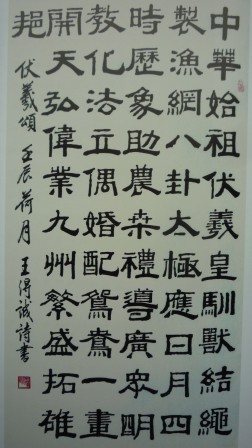 中華始祖伏羲皇馴獸結繩
製漁網八卦太極應日月四
時歷象助農桒禮導廣眾明
教化法立偶婚配鴛鴦一畫
開天弘偉業九州繁盛拓雄
伏羲頌 壬辰荷月 王淂誠詩書